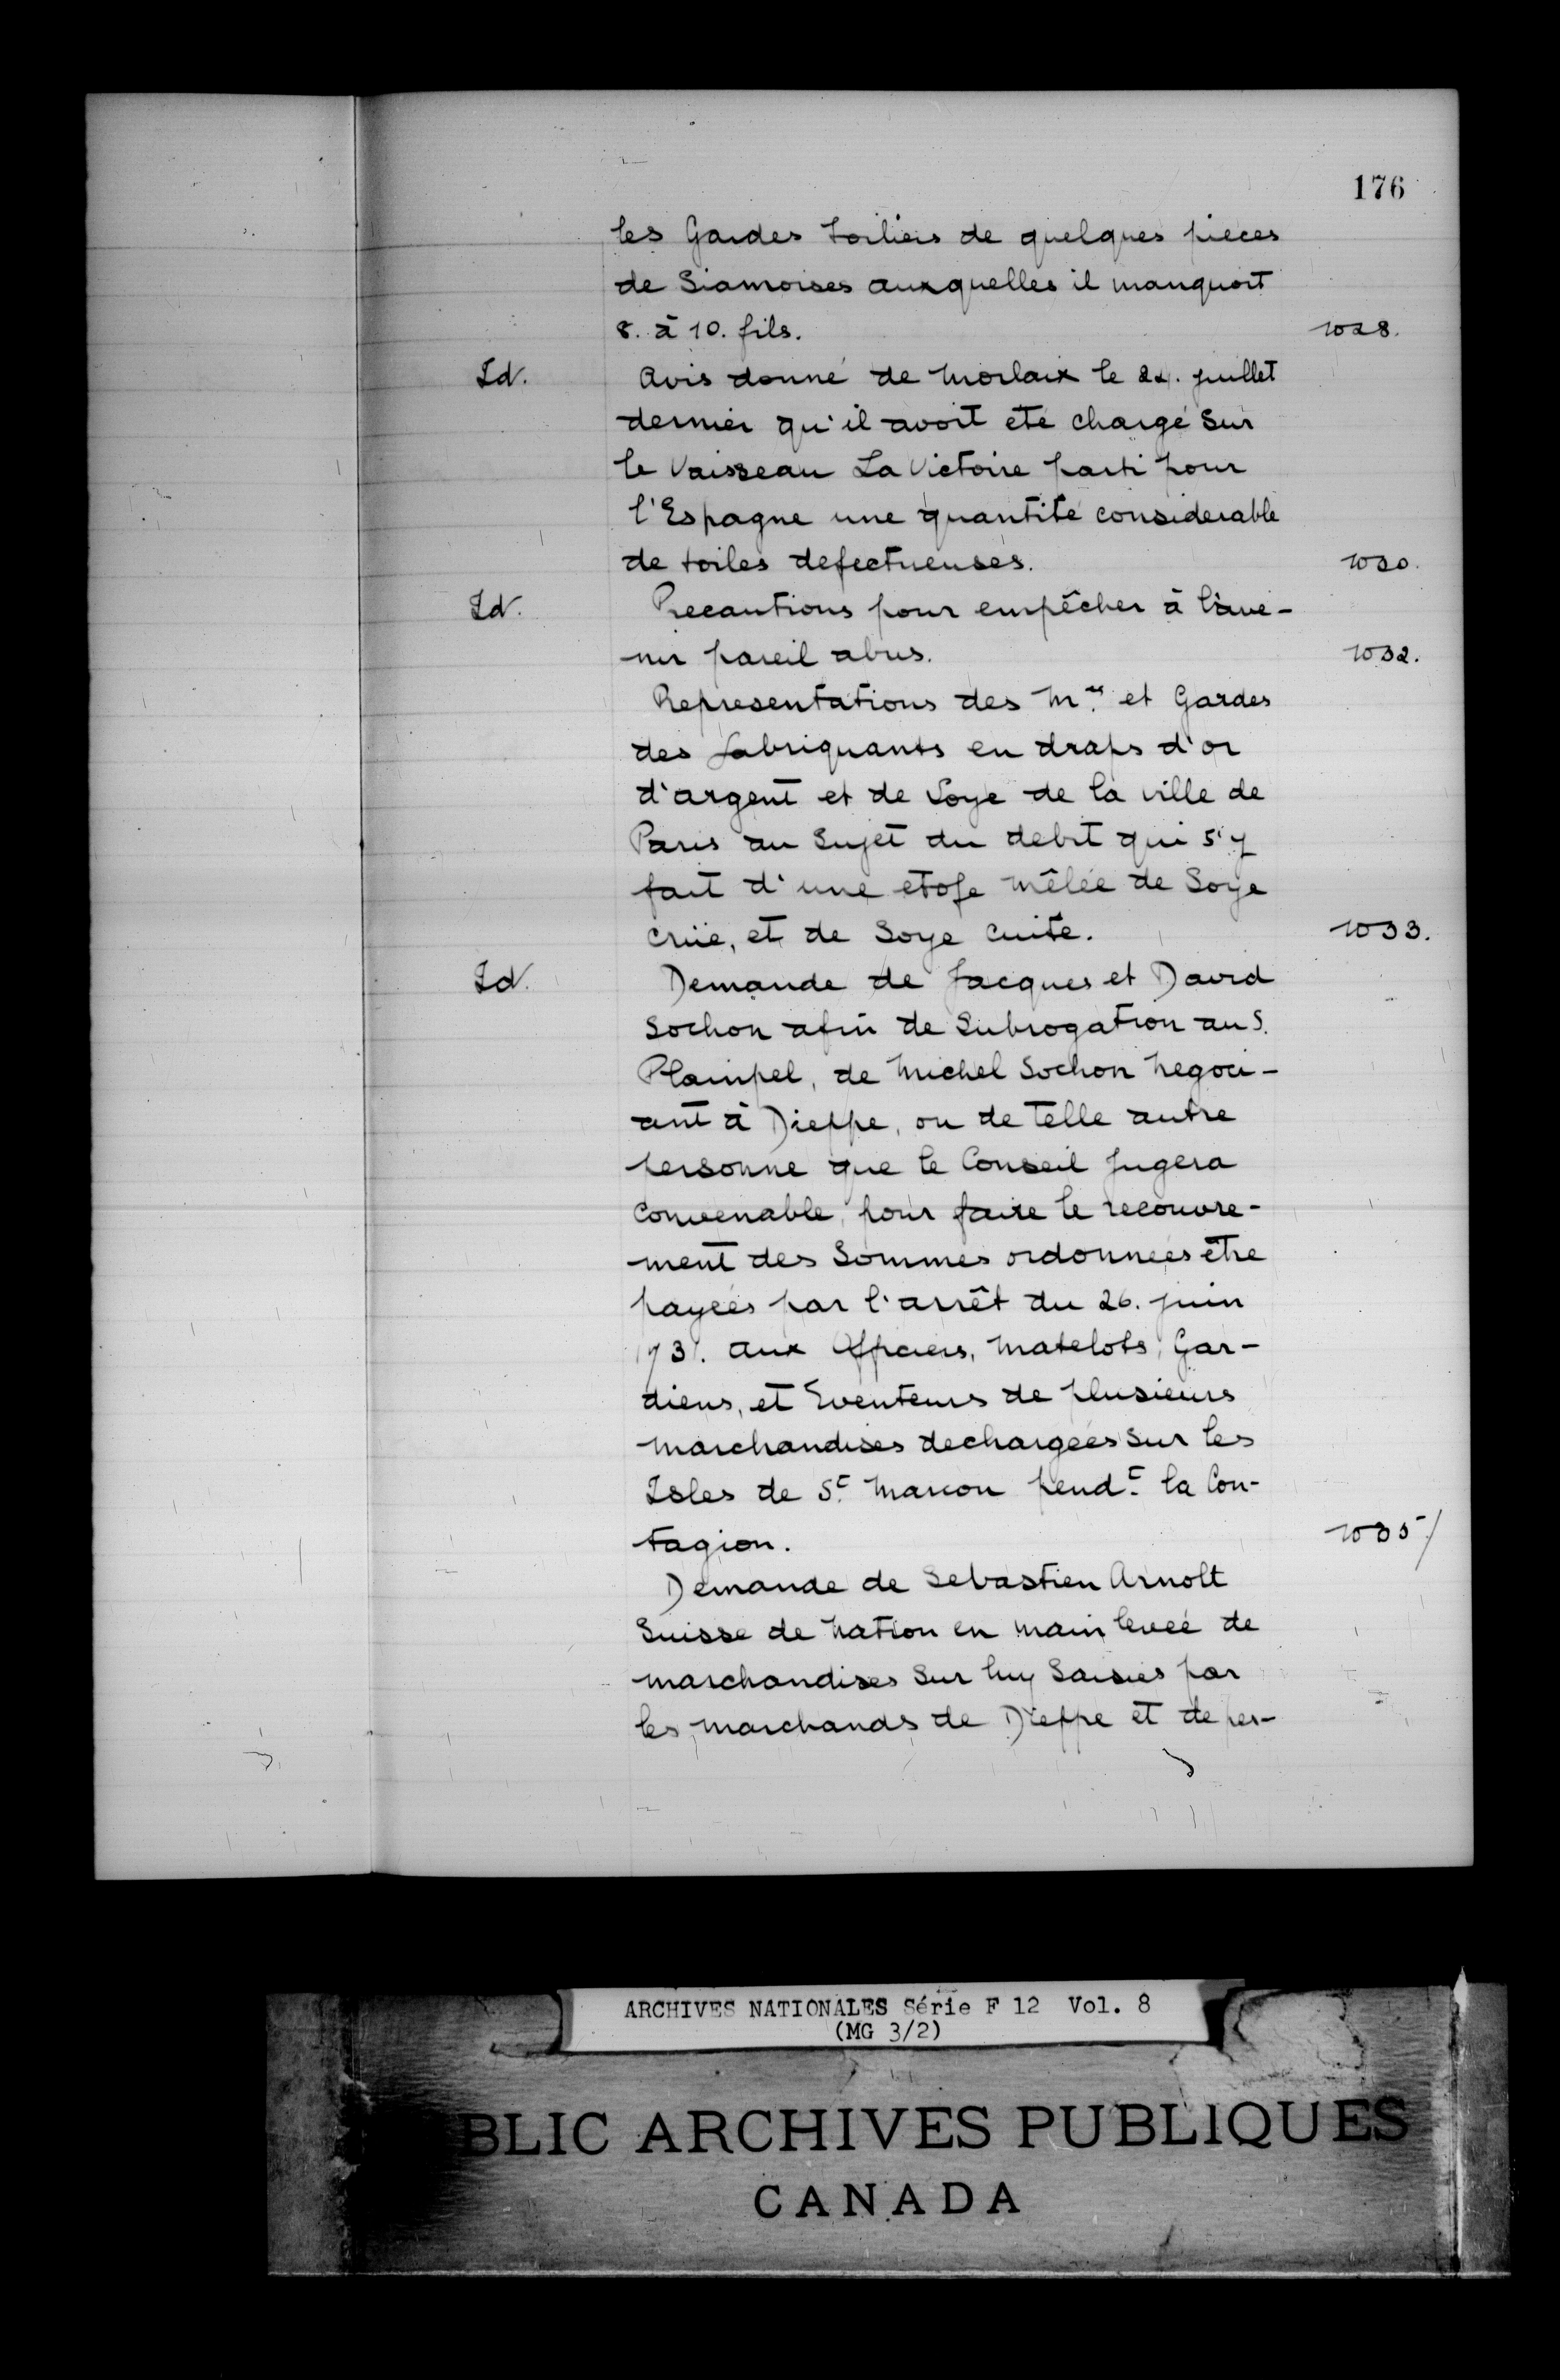 176
les Gardes toiliers de quelques pieces
de Siamoises auxquelles il manquoit
8. à 10. fils. 1028.
Id. Avis donné de Morlaix le 24. juillet
dernier qu'il avoit eté chargé sur
le Vaisseau La Victoire parti pour
l'Espagne une quantité considerable
de toiles defectueuses. 1030.
Id. Precautions pour empêcher à l'ave-
nir pareil abus. 1032.
Representations des Mres et Gardes
des fabriquants en draps d'or
d'argent et de Soye de la ville de
Paris au Sujet du debit qui s'y
fait d'une etofe mêlée de Soye
crüe, et de Soye cuite. 1033.
Id. Demande de Jacques et David
Sochon afin de Subrogation au S.
Plainpel, de Michel Sochon Negoci-
ant à Dieppe, ou de telle autre
personne que le Conseil jugera
convenable, pour faire le recouvre-
ment des Sommes ordonnées être
payées par l'arrêt du 26. juin
1731. aux Officiers, Matelots, Gar-
diens, et Eventeurs de plusieurs
marchandises dechargées sur les
Isles de St. Marcou pendt. la Con-
tagion. 1035/
Demande de Sebastien Arnolt
Suisse de Nation en main levée de
marchandises Sur luy Saisies par
les marchands de Dieppe et de per-
ARCHIVES NATIONALES Série F 12 Vol. 8
(MG 3/2)
BLIC ARCHIVES PUBLIQUES
CANADA